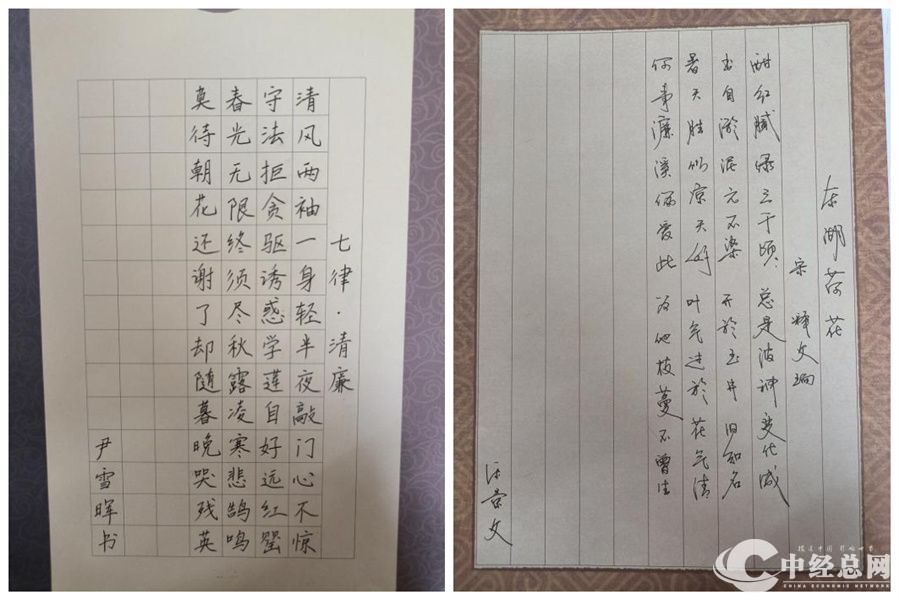 七律·清廉
清风两袖一身轻半夜敲门心不惊
守法拒贪驱诱惑学莲自好远红罂
春光无限终须尽秋露凌寒悲鹄鸣
莫待朝花还谢了却随暮晚哭残英
尹雪晖书
东湖荷花
宋 释文珦
酣红腻绿三千顷，总是波神变化成
出自淤泥元不染 开於玉井旧知名
暑天胜似凉天好 叶气过於花气清
何事濂溪偏爱此 为他枝蔓不曾生
景文
中经总网
CHINA ECONOMIC NETWORK